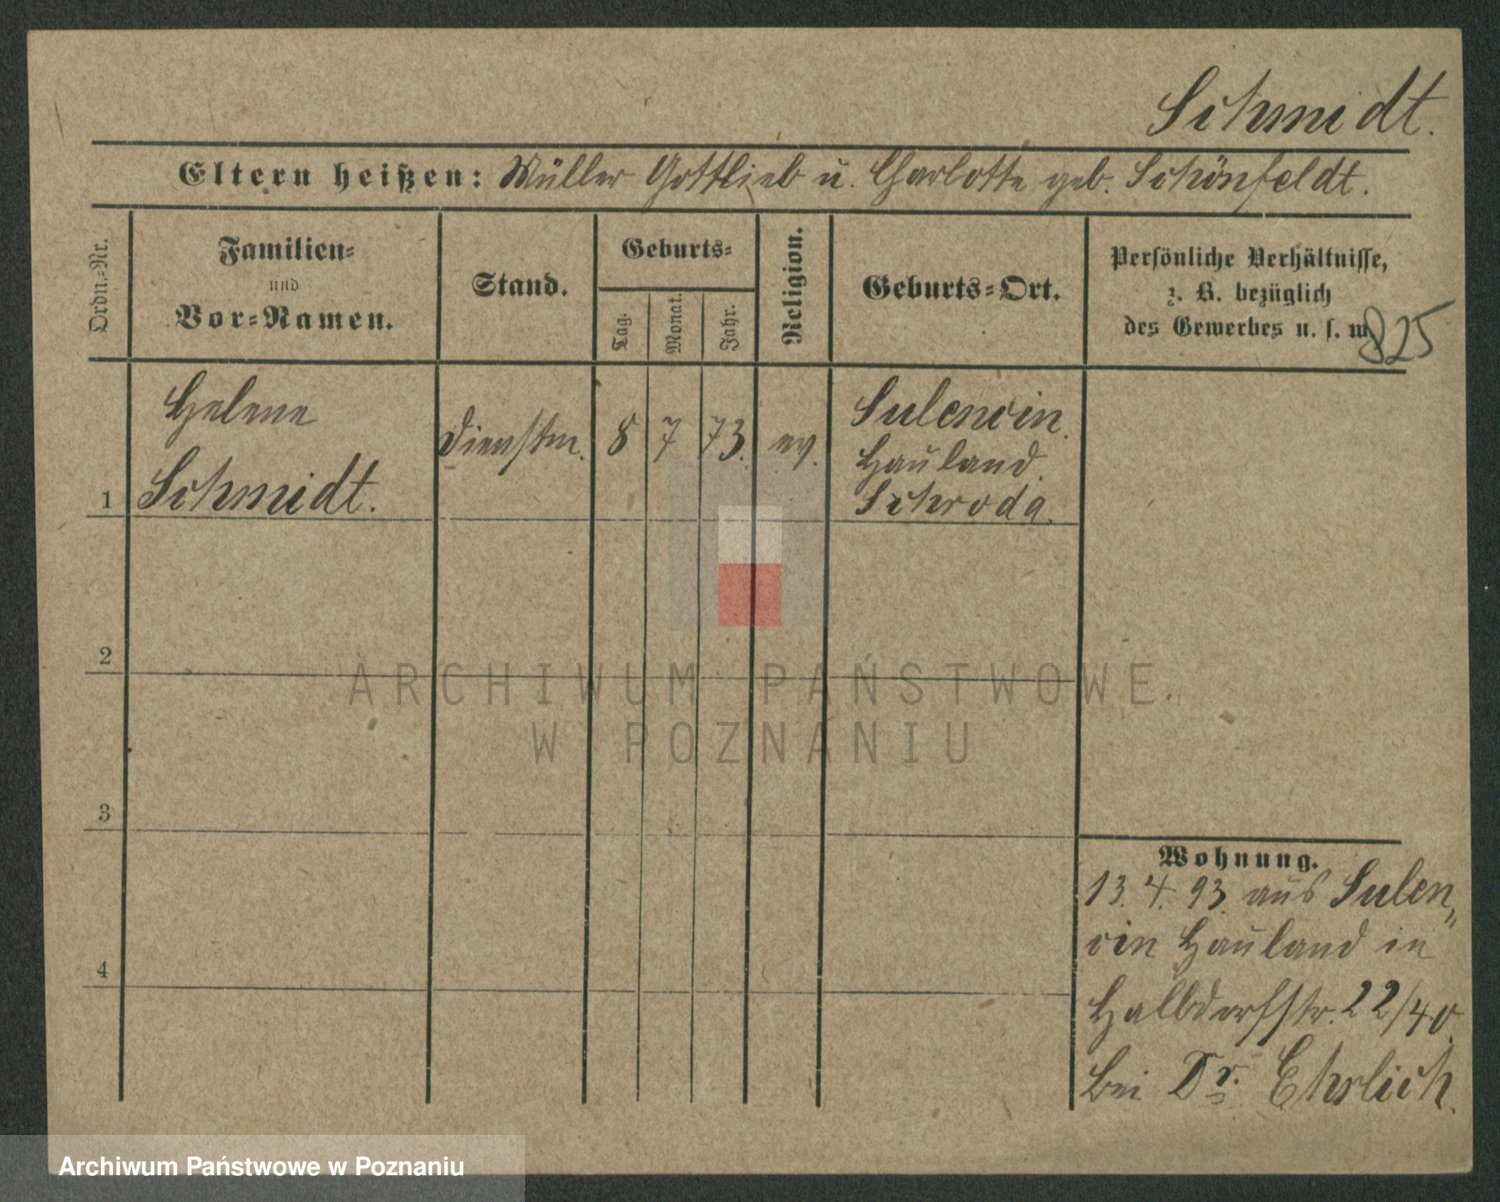 Schmidt.
Eltern heißen: Müller Gottlieb u. Charlotte geb. Schönfeldt.
Ordn.-Nr.
Familien-
und
Vor-Namen.
Stand.
Geburts-
Tag.
Monat.
Jahr.
Religion.
Geburts-Ort.
Persönliche Verhältnisse,
z. B. bezüglich
des Gewerbes u. s. w.
825
Helene
Schmidt.
1
Dienstm.
8
7
73.
ev.
Sulencin
Hauland.
Schroda.
2
3
4
Wohnung.
13. 4. 93. aus Sulen„
cin Hauland in
Halbdorfstr. 22/40.
bei Dr. Ehrlich.
ARCHIWUM PAŃSTWOWE
W POZNANIU
Archiwum Państwowe w Poznaniu